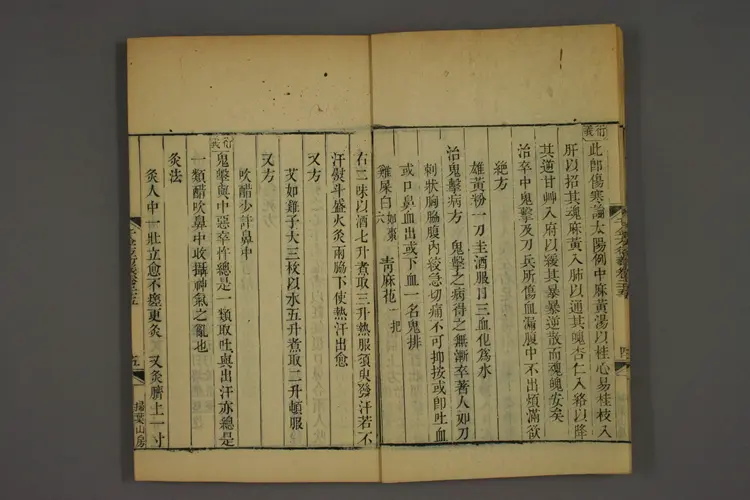 衍義
此卽傷寒論太陽例中麻黃湯以桂心易桂枝入
肝以招其魂麻黃入肺以通其魄杏仁入絡以降
其逆甘艸入府以緩其暴暴逆散而魂魄安矣
治卒中鬼擊及刀兵所傷血漏腹中不出煩滿欲
絶方
雄黃粉一刀圭酒服日三血化爲水
治鬼擊病方 鬼擊之病得之無漸卒著人如刀
刺狀胸脇腹內絞急切痛不可抑按或卽吐血
或口鼻血出或下血一名鬼排
雞屎白如棗 靑麻花一把
右二味以酒七升煮取三升熱服須臾發汗若不
汗熨斗盛火灸兩脇下使熱汗出愈
又方
艾如雞子大三枚以水五升煮取二升頓服
又方
吹醋少許鼻中
衍義
鬼擊與中惡卒忤總是一類取吐與出汗亦總是
一類醋吹鼻中收攝神氣之亂也
灸法
灸人中一壯立愈不瘥更灸 又灸臍上一寸
五
掃葉山房